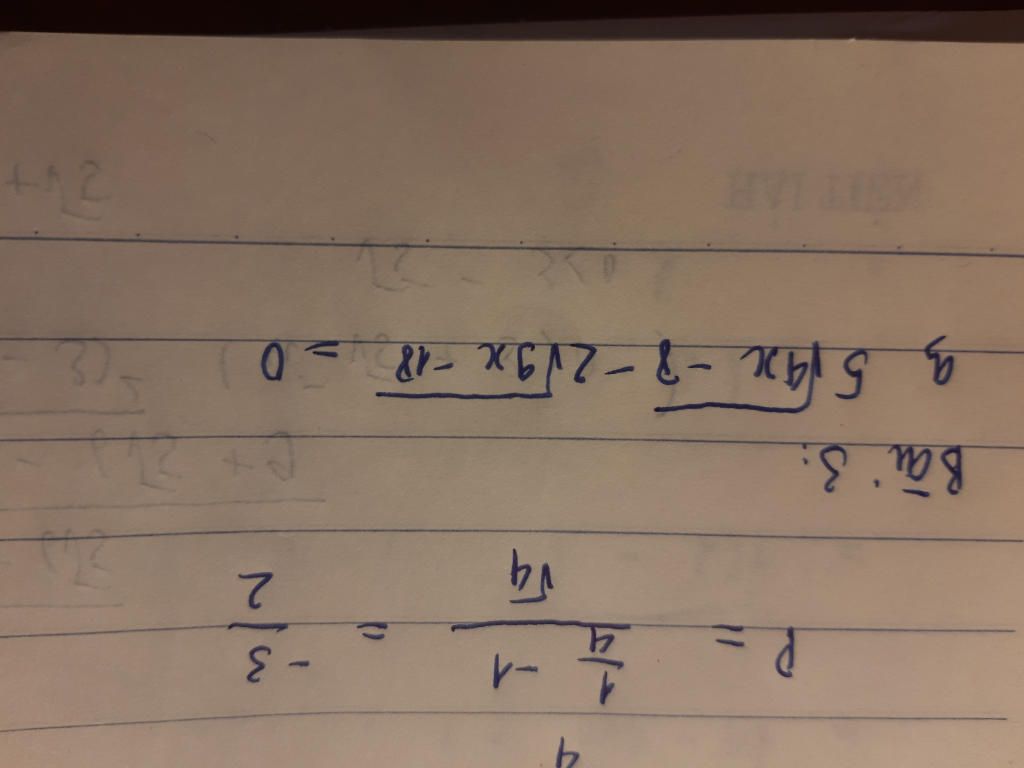 4
P = \frac{\frac{1}{4} - 1}{\sqrt{4}} = \frac{-3}{2}
Bài 3:
a, 5\sqrt{4x - 8} - 2\sqrt{9x - 18} = 0